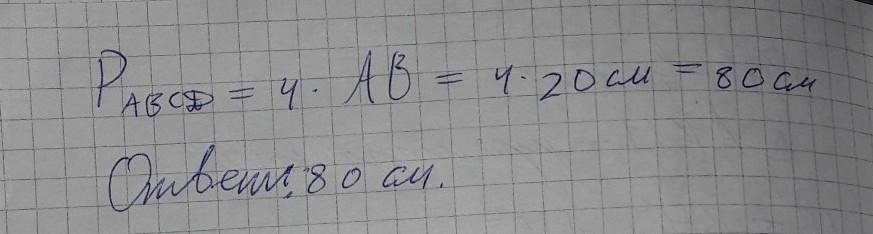 P ABCD = 4 · AB = 4 · 20 см = 80 см
Ответ: 80 см.